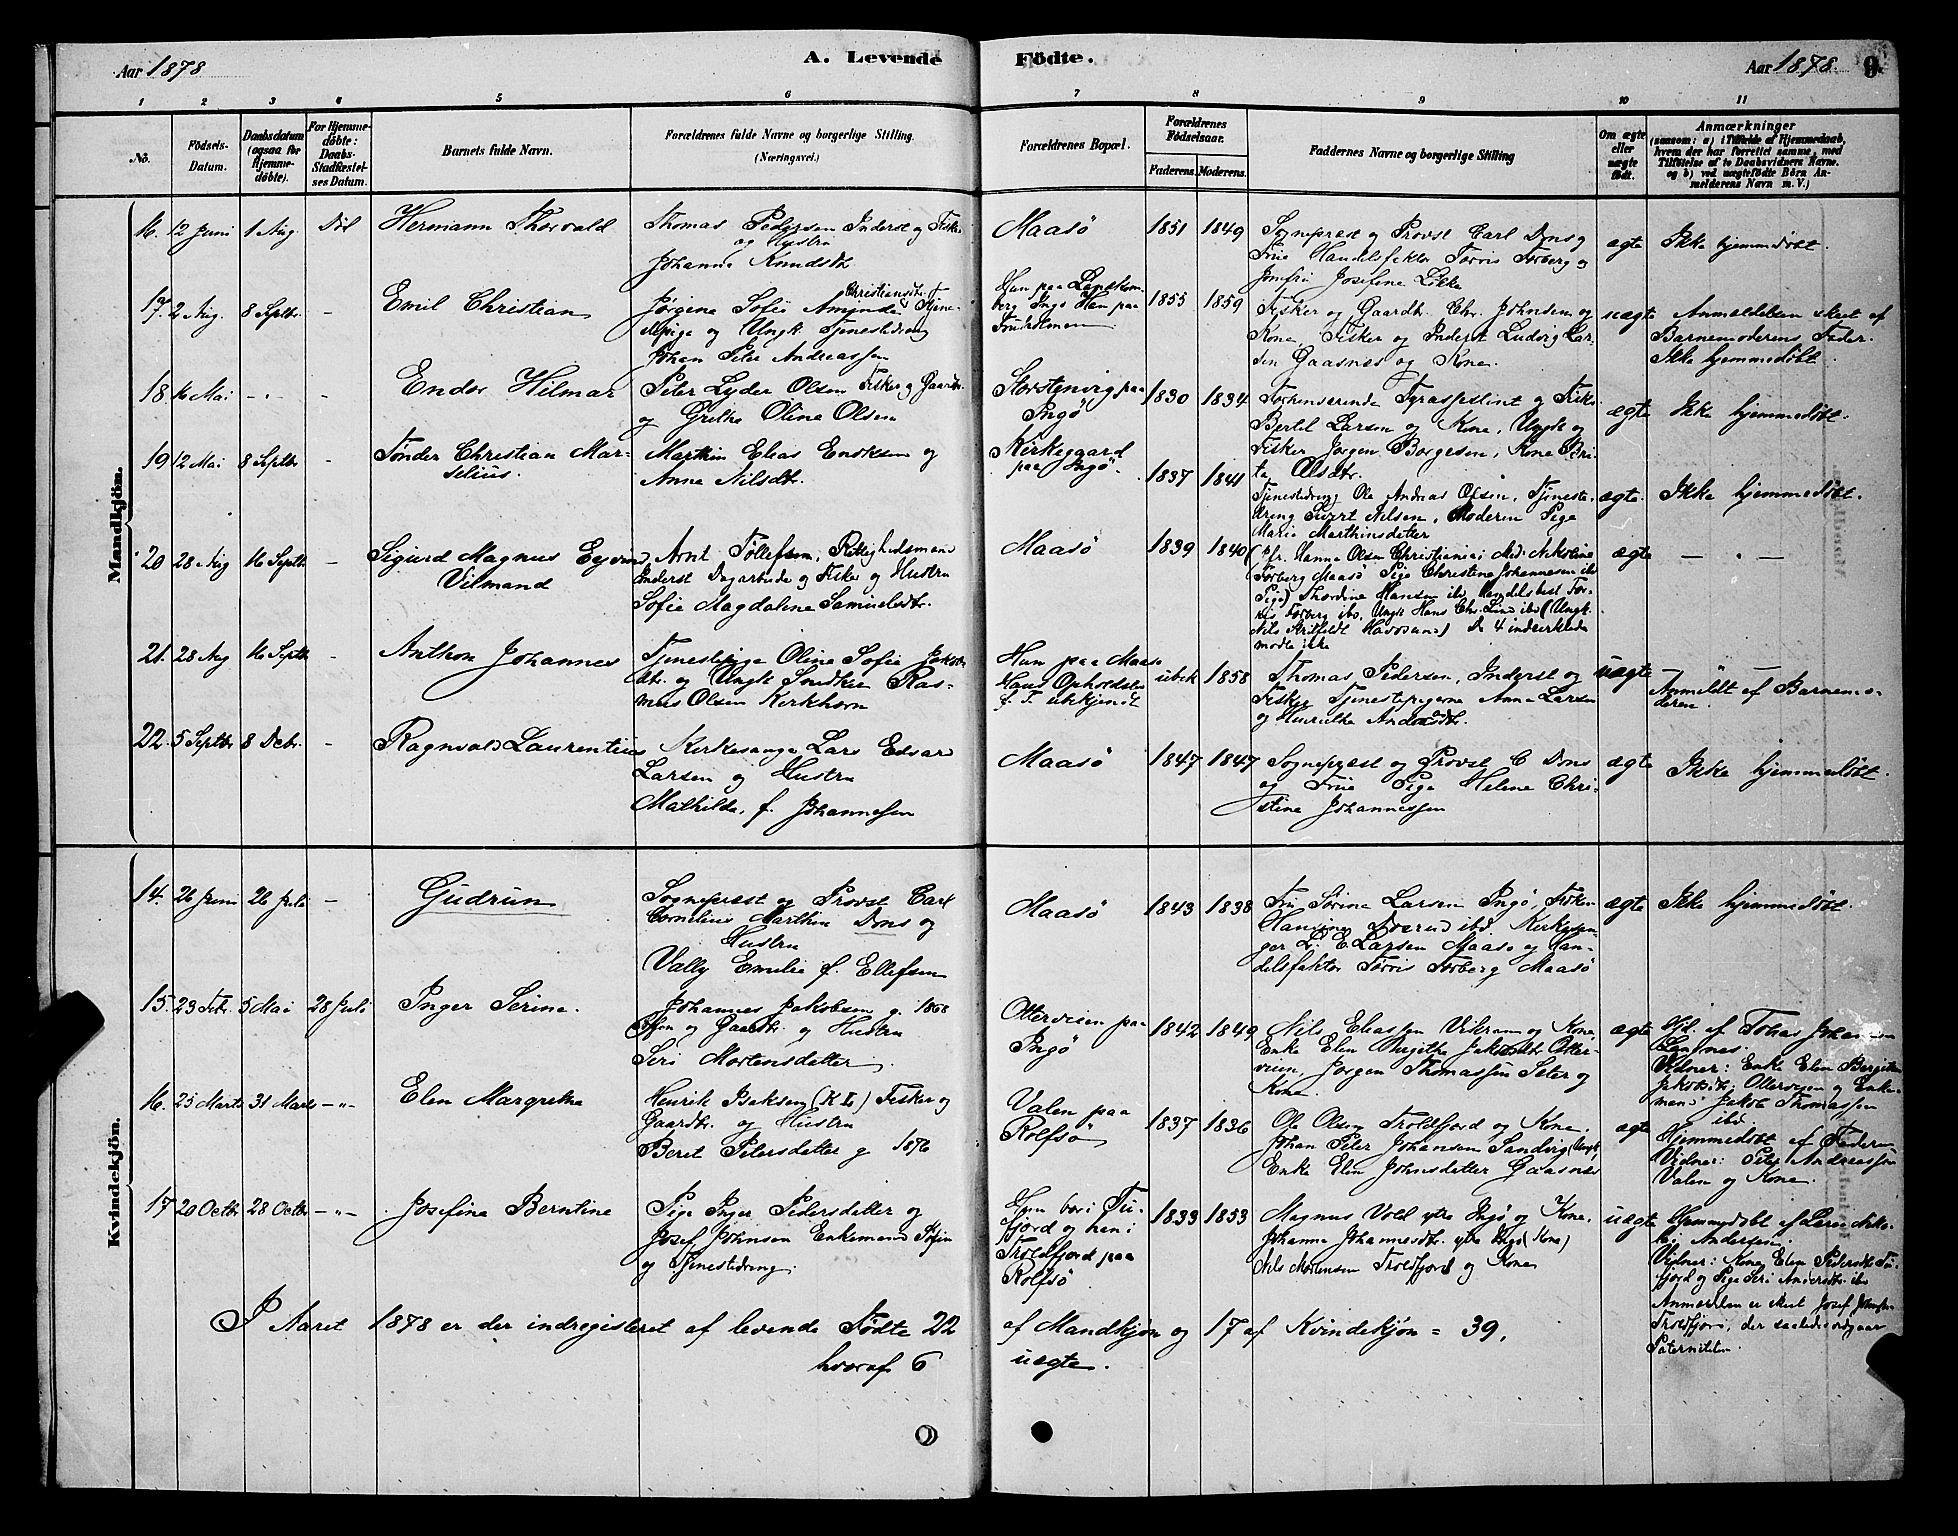 Aar 1878
A. Levende Födte.
Aar 1878.
9
1 2 3 4 5 6 7 8 9 10 11
No.
Födsels-Datum.
Daabsdatum (ogsaa for Hjemme-döbte).
For Hjemme-döbte: Daabs-Stadfæstel-ses Datum.
Barnets fulde Navn.
Forældrenes fulde Navne og borgerlige Stilling. (Næringsvei.)
Forældrenes Bopæl.
Forældrenes Födselsaar.
Faderens. Moderens.
Faddernes Navne og borgerlige Stilling
Om ægte eller uægte födt.
Anmærkninger
(saasom: a) i Tilfælde af Hjemmedaab, hvem der har forrettet samme, med Tilföielse af to Daabsvidners Navne. og b) ved uægtefödte Börn An-melderens Navn m. V.)
Mandkjön.
16. 12 Juni 1 Aug
Hermann Thorvald
Thomas Pedersen Inderst og Fisker
og Hustru
Johanna Knudsdtr.
Maasö
1851 1849
Sogneprest og Provst Carl Dons og
Frue Handelsfaktor Torris Torberg og
Jomfru Josefine Likke
ægte
Ikke hjemmedöbt.
17. 2 Aug. 8 Septbr. -
Emil Christian
Jörgine Sofie Amunda Christiansdtr. Tjene-
stepige og Ungk. Tjenestedreng
Johan Peter Andreassen
Hun paa
Ingö Han paa
1855 1859
Fisker og Gaardbr. Chr. Johnsen og
Kone, Fisker og Inderst Ludvig Lar-
sen Gaasnes og Kone.
uægte
Anmeldelsen skeet af
Barnemoderens Fader.
Ikke hjemmedöbt.
18. 16 Mai -"- -
Endor Hilmar
Peter Lyder Olsen Fisker og Gaardbr.
og Grethe Oline Olsen
paa
Ingö
1830 1834
Forhenværende og Fisker
Bertel Larsen og Kone, Ungk og
Fisker Jörgen Borgesen, Kone Bri-
ta Olsdtr.
ægte
Ikke hjemmedöbt.
19. 12 Mai 8 Septbr -
Tönder Christian Mar-
selius.
Marthin Elias Eriksen og
Anna Nilsdtr.
Kirkegaard
paa Ingö.
1837 1841
Tjenestedreng Ole Andreas Olsen, Tjeneste-
dreng Sivert Nilsen, Moderen Pige
Marie Marthinsdetter
ægte.
Ikke hjemmedöbt.
20 28 Aug 16 Septbr -
Sigurd Magnus Eyvind
Vilmand
Arnt Tollefsen, Rettighedsmand
Inderst Dagarbeider og Fisker og Hustru
Sofie Magdalene Samuelsdtr.
Maasö
1839 1840
(Fr. Hanna Olsen Christiania; Md. Nikoline
(Torberg Maasö Pige Christine Johannesen ibd
Pige) Thordine Hansen ibd Handelsbest. Tor-
ris Torberg ibd, Ungk Hans Chr. Lind ibd (Ungk.
Nils Havösund) De 4 indcirklede
mödte ikke
ægte
- " -
21. 28 Aug 16 Septbr -
Anthon Johannes
Tjenestepige Oline Sofie Jakobs-
dtr. og Ungk Snedker Ras-
mus Olsen Kerkhorn
Hun paa Maasö
Hans Opholdsted
f. T. ubekjendt
ubek 1858
Thomas Pedersen, Inderst og
Fisker Tjenestepigerne Anna Larsen
og Henrikke Andersdtr.
uægte
Anmeldt af Barnemo-
deren.
22. 5 Septbr 8 Decbr. -
Ragnvald Laurentius
Kirkesanger Lars Edvard
Larsen og Hustru
Mathilda, f. Johannesen
Maasö
1847 1847
Sogneprest og Provst C Dons
og Frue Pige Helene Chri-
stine Johannessen
ægte
Ikke hjemmedöbt.
Kvindekjön.
14. 26 Juni 26 Juli -
Gudrun
Sogneprest og Provst Carl
Cornelius Marthin Dons og
Hustru
Vally Emelie f. Ellefsen
Maasö
1843 1838
Fru Sörine Larsen Ingö, Fröken
ibd. Kirkesan-
ger L. E. Larsen Maasö og Han-
delsfaktor Torris Torberg Maasö
ægte
Ikke hjemmedöbt.
15. 23 Febr. 5 Mai 28 Juli
Inger Serine.
Johannes Jakobsen g. 1868
og Gaardbr. og Hustru
Seri Mortensdetter
Otterveien paa
Ingö
1842 1849
Nils Eliassen Vikran og Kone
Enke Elen Birgithe Jakobsdtr Otter-
veien, Jörgen Thomassen Seter og
Kone.
ægte
Hjd. af Tobias Johannesen
Vidner: Enke Elen Bergitha
Jakobsdtr, Otterveien og Enke-
mand Jakob Thomassen
ibd.
16. 25 Marts 31 Marts -"-
Elen Margretha
Henrik Isaksen (K L) Fisker og
Gaardbr. og Hustru
Beret Petersdetter g 1876
Valen paa
Rolfsö
1837 1836
Ole Olsen Troldfjord og Kone.
Johan Peter Johansen Sandvig (Ungk)
Enke Elen Johnsdetter Gaasnes
ægte
Hjemmedöbt af Faderen
Vidner: Peter Andreassen
Valen og Kone.
17 20 Octbr 28 Octbr -"-
Josefine Berntine
Pige Inger Pedersdetter og
Josef Johnsen Enkemand
og Tjenestedreng.
Hun bor i Tu-
fjord og han i
Troldfjord paa
Rolfsö
1833 1853
Magnus Vold ytre Ingö og Kone.
Johanna Johannesdtr. ytre Ingö (Kone)
Nils Mortensen Troldfjord og Kone
uægte
Hjemmedöbt af
Andersen.
Vidner: Kone Elen Pedersdtr Tu-
fjord og Pige Seri Andersdtr. ibd
Anmelderen er skeet Josef Johnsen
Troldfjord, der saaledes vedgaar
Paterniteten.
I Aaret 1878 er der indregistreret af levende Födte 22 af Mandkjön og 17 af Kvindekjön = 39,
hvoraf 6 uægte.